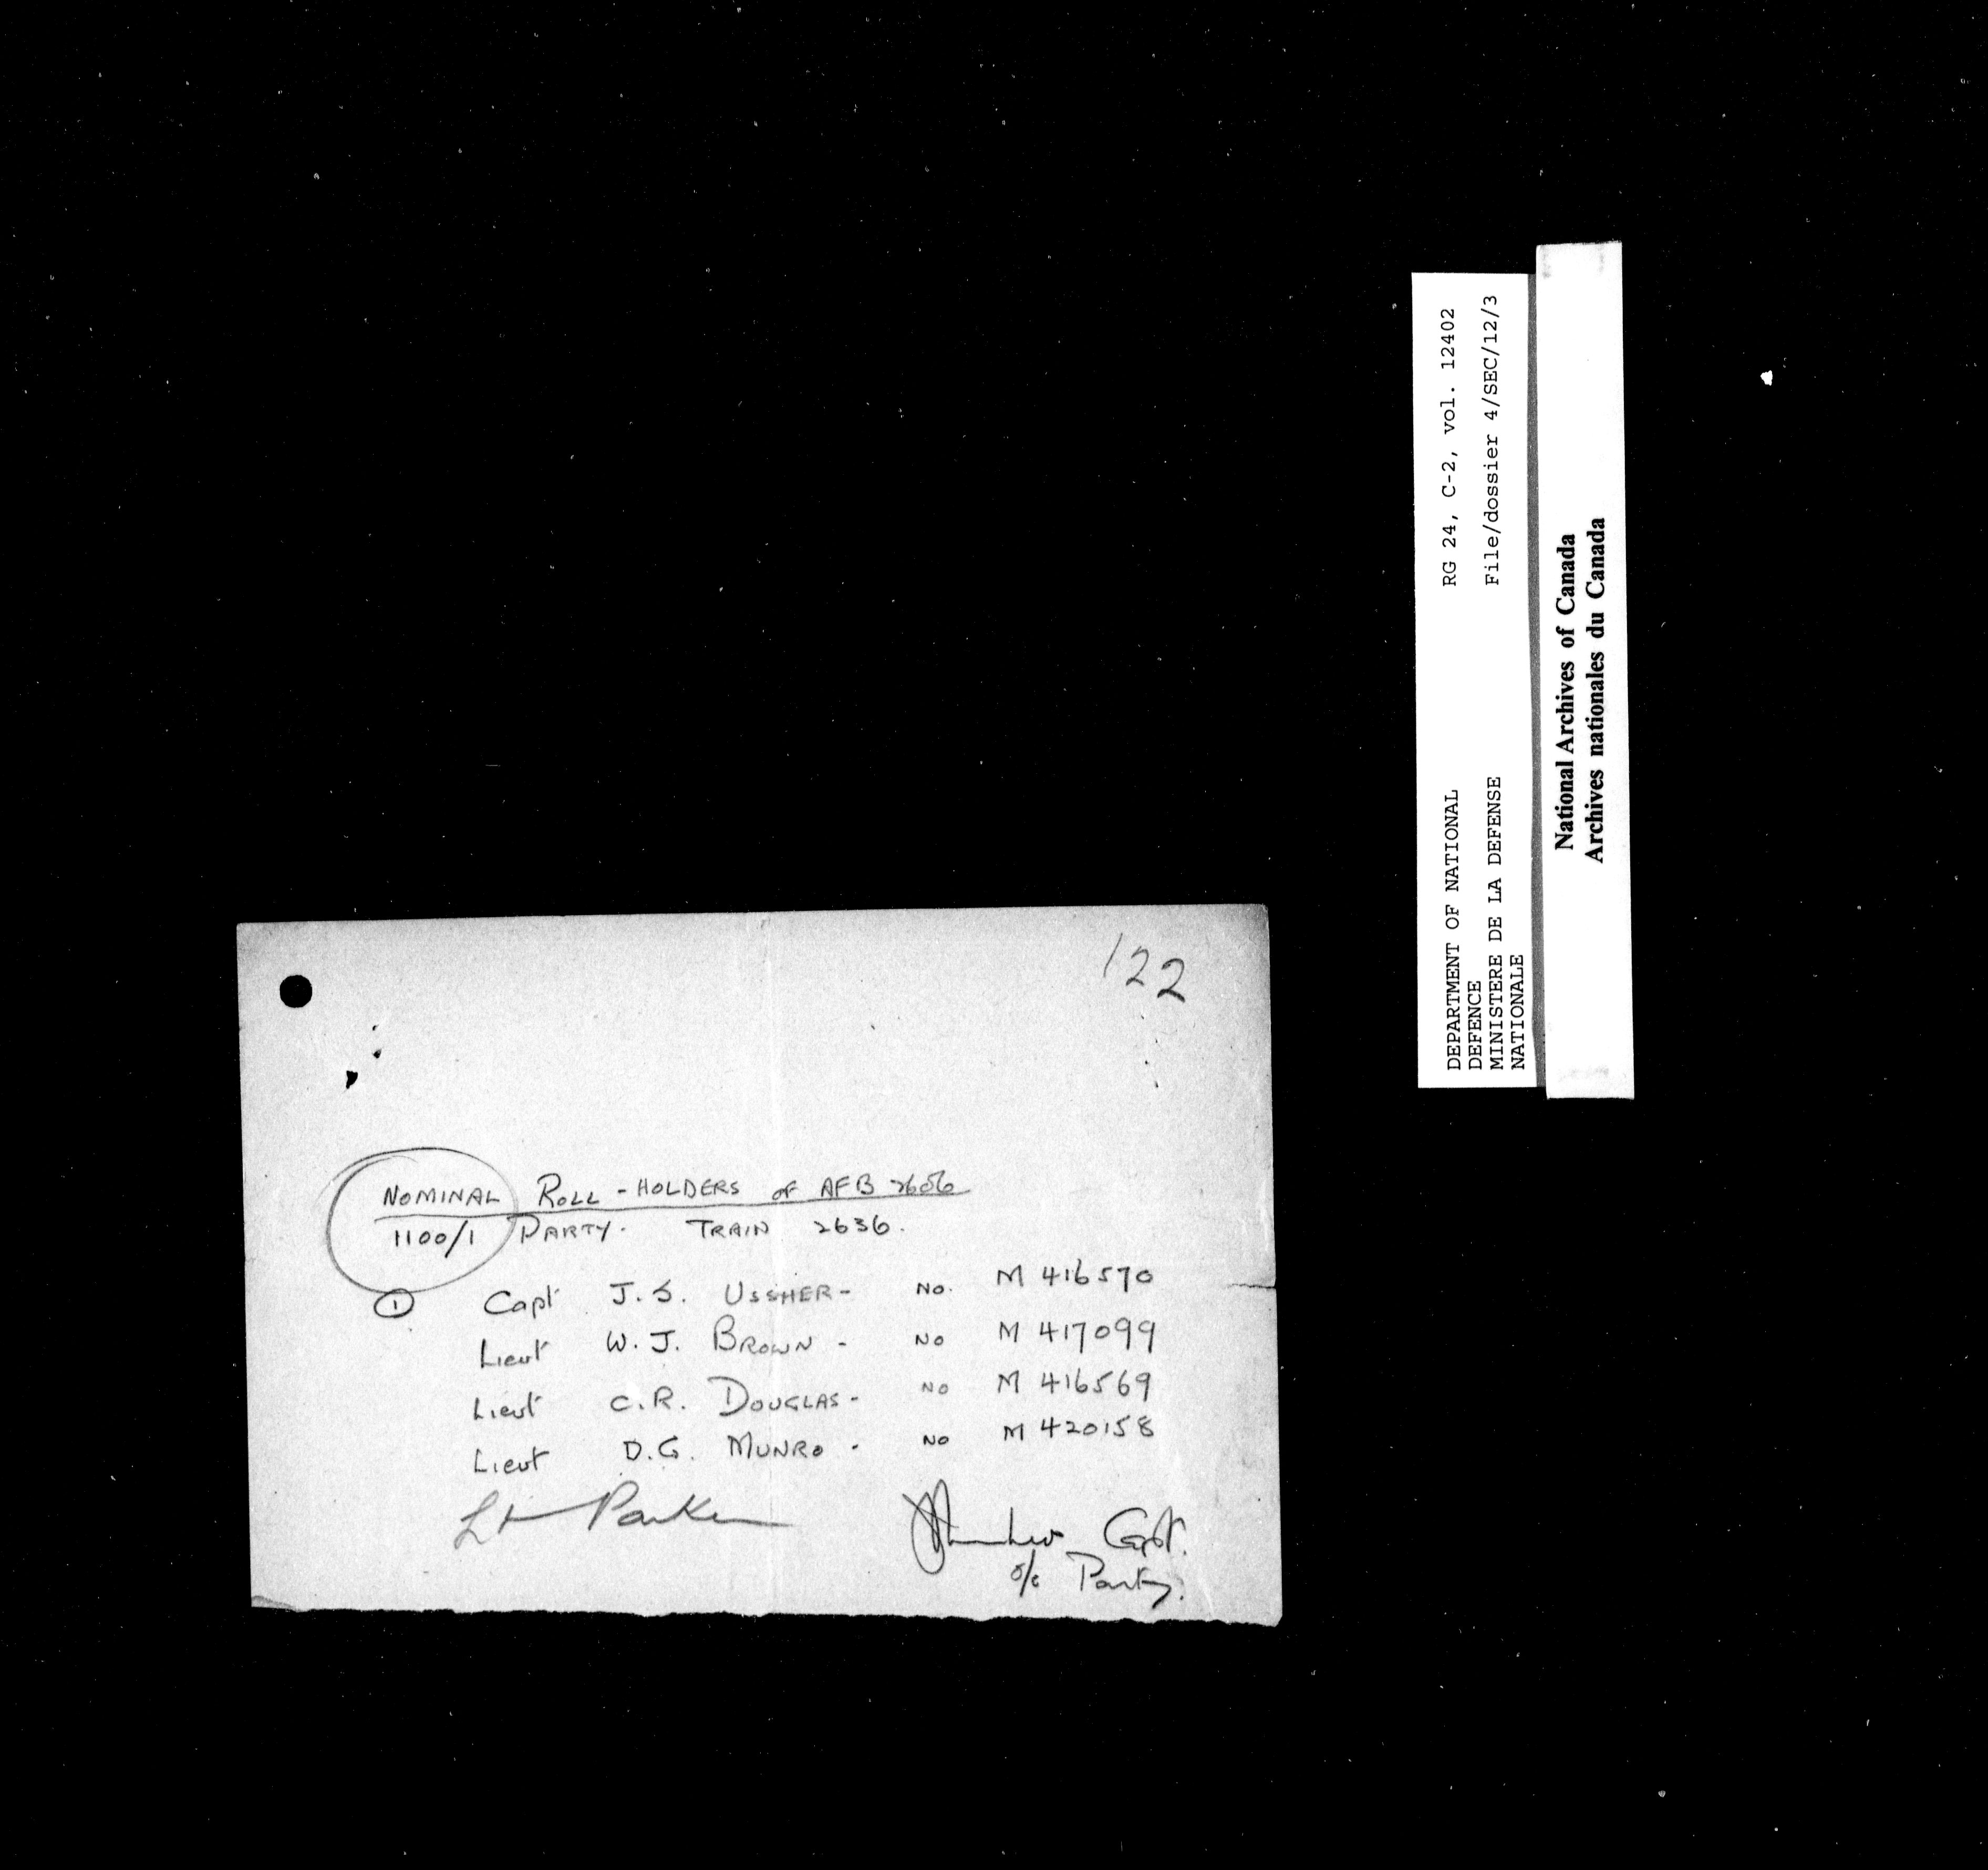 122
NOMINAL ROLL - HOLDERS OF AFB 2606
1100/1 PARTY. TRAIN 2636.
① Capt J.S. USSHER - No. M 416570
Lieut W.J. BROWN - No M 417099
Lieut C.R. DOUGLAS - No M 416569
Lieut D.G. MUNRO - No M 420158
Lt Parker
Capt.
o/c Party.
DEPARTMENT OF NATIONAL
DEFENCE
MINISTERE DE LA DEFENSE
NATIONALE
RG 24, C-2, vol. 12402
File/dossier 4/SEC/12/3
National Archives of Canada
Archives nationales du Canada